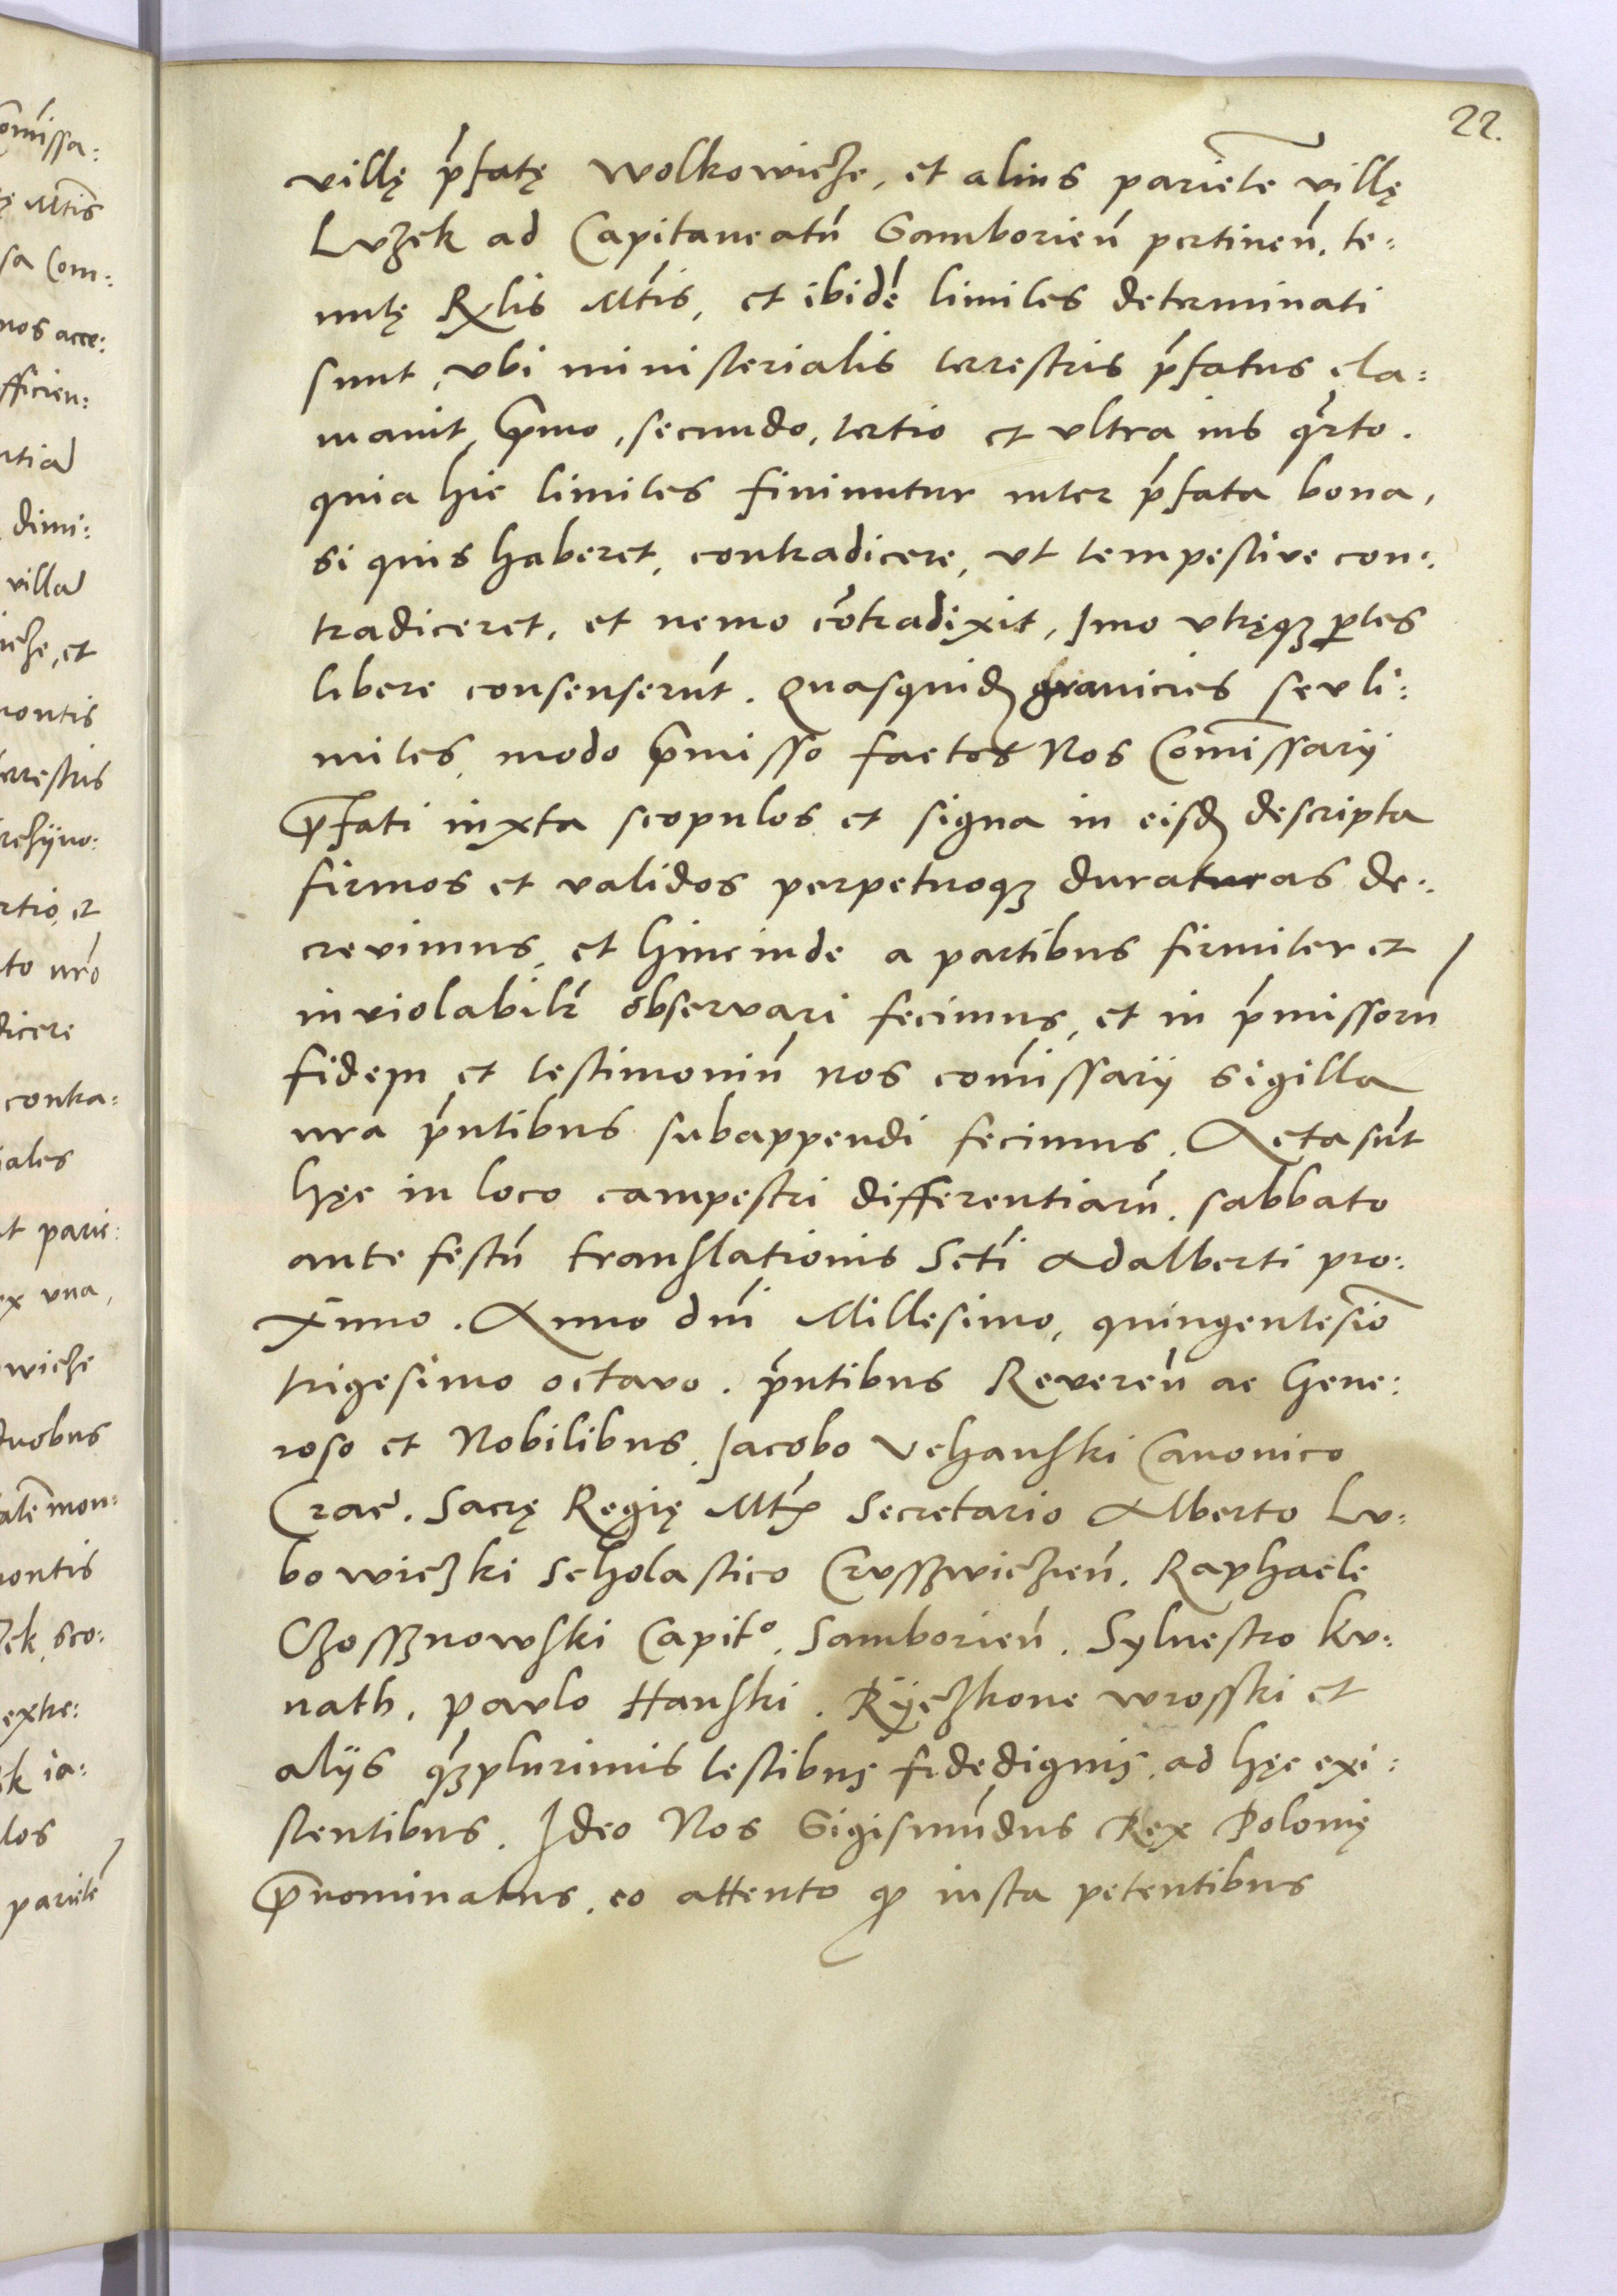 22.
villę p̄fatę Wolkowicze, et alius parietē villę
Luzek ad Capitaneatū Samborien̄ pertinen̄, te⸗
nutę Rꝉis Mtis, et ibidē limites determinati
sunt, vbi ministerialis terrestris p̄fatus cla⸗
mauit, p̄mo, secundo, tertio et vltra ius q̄rto.
quia hic limites finiuntur inter p̄fata bona,
si quis haberet, contradicere, vt tempestiue con⸗
tradiceret, et nemo cōtradixit, Imo vtręqꝫ ꝑtes
libere consenserūt. Quasquidꝫ granicies seu li⸗
mites, modo p̄misso factos Nos Com̄issarij
p̄fati iuxta scopulos et signa in eisdꝫ descripta
firmos et validos perpetuoqꝫ duraturas de⸗
creuimus, et hincinde a partibus firmiter et
inviolabilr̄ observari fecimus, et in p̄missorū
fidem et testimoniū nos com̄issarij sigilla
nr̄a p̄ntibus subappendi fecimus. Acta sūt
hęc in loco campestri differentiarū. sabbato
ante festū translationis Scti Adalberti pro⸗
ximo. Anno dn̄i Millesimo, quingentesi͞o
trigesimo octavo. p̄ntibus Reveren̄ ac Gene⸗
roso et Nobilibus, Jacobo Vchanski Canonico
Crac̄. Sacrę Regię Mtꝭ Secretario Alberto Lu⸗
bowiczki Scholastico Crusswicien̄. Raphaele
Czosznowski Capitº. Samborien̄. Sylvestro Ku⸗
nath, pavlo Hanski. Rÿczkone wrosski et
alijs q̄ꝫplurimis testibus fidedignis, ad hęc exi⸗
stentibus. Ideo Nos Sigismūdus Rex Polonię
p̄nominatus, eo attento ꝙ iusta petentibus